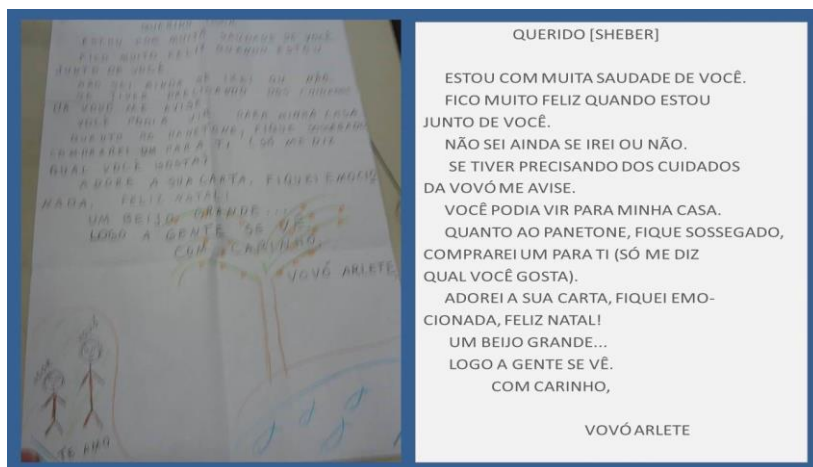 QUERIDO
ESTOU COM MUITA SAUDADE DE VOCÊ.
FICO MUITO FELIZ QUANDO ESTOU
JUNTO DE VOCÊ.
NÃO SEI AINDA SE IREI OU NÃO.
SE TIVER PRECISANDO DOS CUIDADOS
DA VOVÓ ME AVISE.
VOCÊ PODIA VIR PARA MINHA CASA.
QUANTO AO PANETONE, FIQUE SOSSEGADO,
COMPRAREI UM PARA TI (SÓ ME DIZ
QUAL VOCÊ GOSTA)
ADOREI A SUA CARTA, FIQUEI EMOCIO
NADA, FELIZ NATAL!
UM BEIJO GRANDE...
LOGO A GENTE SE VÊ.
COM CARINHO,
VOVÓ ARLETE
TE AMO
QUERIDO [SHEBER]
ESTOU COM MUITA SAUDADE DE VOCÊ.
FICO MUITO FELIZ QUANDO ESTOU
JUNTO DE VOCÊ.
NÃO SEI AINDA SE IREI OU NÃO.
SE TIVER PRECISANDO DOS CUIDADOS
DA VOVÓ ME AVISE.
VOCÊ PODIA VIR PARA MINHA CASA.
QUANTO AO PANETONE, FIQUE SOSSEGADO,
COMPRAREI UM PARA TI (SÓ ME DIZ
QUAL VOCÊ GOSTA).
ADOREI A SUA CARTA, FIQUEI EMO-
CIONADA, FELIZ NATAL!
UM BEIJO GRANDE...
LOGO A GENTE SE VÊ.
COM CARINHO,
VOVÓ ARLETE